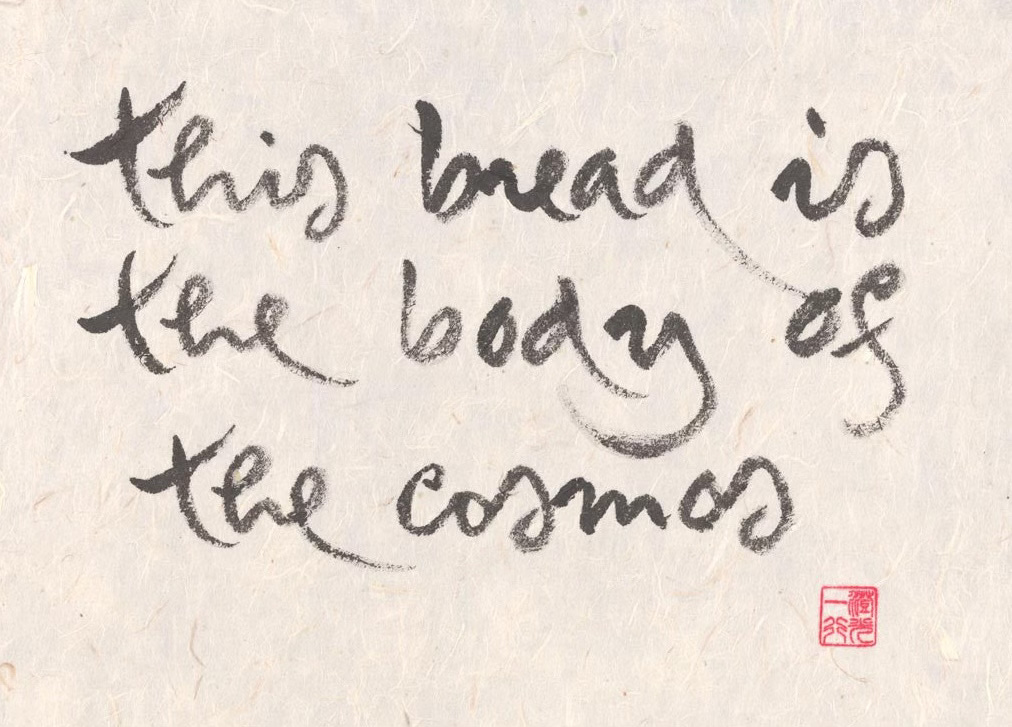 this bread is
the body of
the cosmos